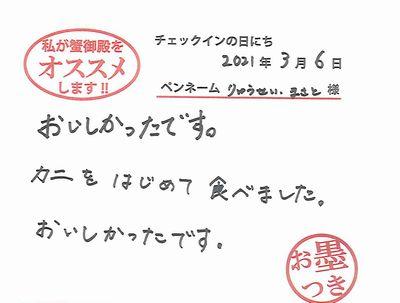 私が蟹御殿を
オススメ
します!!
チェックインの日にち
2021年 3月 6日
ペンネーム りゅうせい、まさと 様
おいしかったです。
カニを はじめて 食べました。
おいしかったです。
お墨
つき